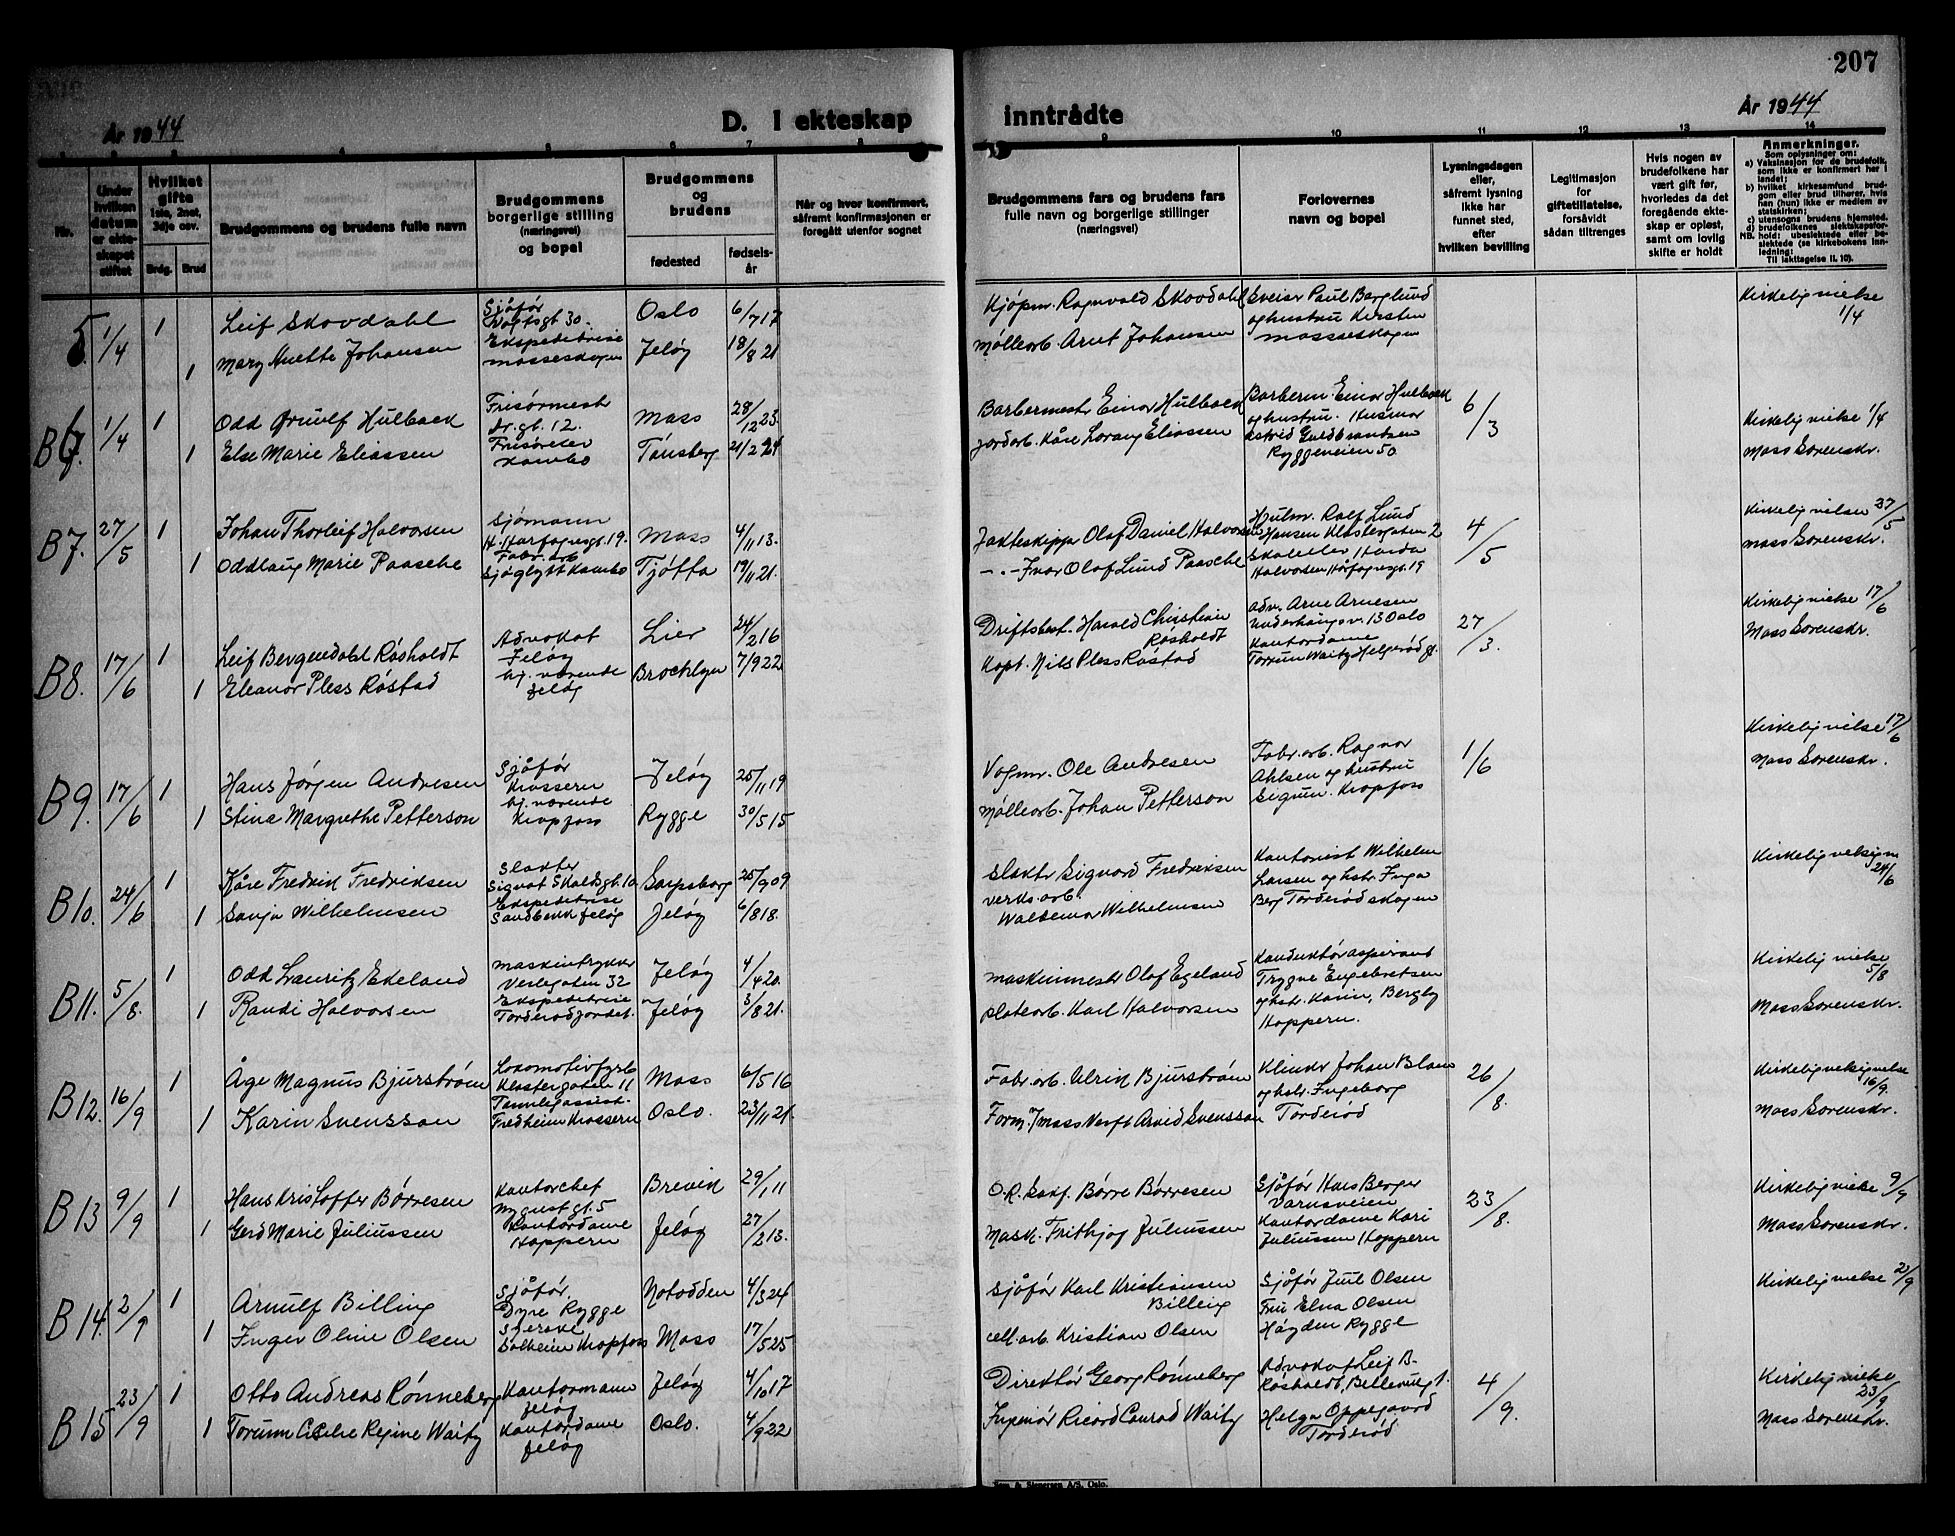 207
År 1944
D. I ekteskap inntrådte
År 1944
1 2 3 4 5 6 7 8 9 10 11 12 13 14
Nr.
Under hvilken datum er ekteskapet stiftet
Hvilket gifte 1ste, 2net, 3dje osv.
Brdg. Brud
Brudgommens og brudens fulle navn
Brudgommens borgerlige stilling (næringsvei) og bopel
Brudgommens og brudens
fødested
fødselsår
Når og hvor konfirmert, såfremt konfirmasjonen er foregått utenfor sognet
Brudgommens fars og brudens fars fulle navn og borgerlige stillinger (næringsvei)
Forlovernes navn og bopel
Lysningsdagen eller, såfremt lysning ikke har funnet sted, efter hvilken bevilling
Legitimasjon for giftetillatelse, forsåvidt sådan tiltrenges
Hvis nogen av brudefolkene har vært gift før, hvorledes da det foregående ekteskap er opløst, samt om lovlig skifte er holdt
Anmerkninger.
Som oplysninger om:
a) Vaksinasjon for de brudefolk, som ikke er konfirmert her i landet;
b) hvilket kirkesamfund brudgom eller brud tilhører, hvis han (hun) ikke er medlem av statskirken;
c) utensogns brudens hjemsted.
d) brudefolkenes slektskapsforhold: ubeslektede eller beslektede (se kirkebokens innledning;
NB.
Til iakttagelse II. 10).
5. 1/4 1 Leif Skovdahl Sjåfør Vogtsgt 30. Oslo 6/7 17 Kjøpm. Ragnvald Skovdahl Sveiser Paul Berglund Kirkelig vielse 1/4
1 Mary Anette Johansen Ekspeditrise Mosseskogen Jeløy 18/8 21 Mølleorb. Arnt Johansen og hustru Kirsten Mosseskogen
B6. 1/4 1 Odd Ørnulf Hulbæk Frisørmestr Dr.gt. 12. Moss 28/12 23. Barbermestr Einar Hulbæk Barberm. Einar Hulbæk 6/3 Kirkelig vielse 1/4
1 Else Marie Eliassen Frisørelev Kambo Tønsberg 21/2 24 Jordarb. Kåre Lorang Eliassen og hustru. Husmor Astrid Guldbrandsen Ryggeveien 50 Moss Sorenskr.
B7. 27/5 1 Johan Thorleif Halvorsen Sjømann H. Harfagresgt. 19. Moss 4/11 13. Jakteskippr Olaf Daniel Halvorsen Hjulm. Rolf Lund Hansen Klostergaten 2 4/5 Kirkelig vielse 27/5
1 Oddlaug Marie Paasche Fabr. arb. Sjøglytt Kambo Tjøtta 19/11 21. - . - Ivar Olaf Lund Paasche Halvorsen Hårfagresgt. 19 Moss Sorenskr.
B8. 17/6 1 Leif Bergendahl Røsholdt Advokat Jeløy Lier 24/2 16 Driftsbest. Harald Christian Røsholdt Adv. Arne Arnesen Underhaugsv. 13 Oslo 27/3. Kirkelig vielse 17/6
1 Eleanor Pless Røstad hj. værende Jeløy Brochlyn 7/9 22 Kapt. Nils Pless Røstad Kontordame Torrum Waitz Helgerød gt. Moss Sorenskr.
B9. 17/6 1 Hans Jørgen Andresen Sjåfør Krossern Jeløy 25/11 19 Vognm. Ole Andresen Fabr. arb. Ragnar 1/6 Kirkelig vielse 17/6
1 Stina Margrethe Petterson hj. værende Kropfoss Rygge 30/5 15 Mølleorb. Johan Petterson Ahlsen og hustru Sigrun. Kropfoss Moss Sorenskr.
B10. 24/6 1 Kåre Fredrik Fredriksen Slakter Sigvat Skaldsgt. 10 Sarpsborg 25/9 09 Slaktr Sigvard Fredriksen Kontorist Wilhelm Kirkelig velsign 24/6
1 Sonja Wilhelmsen Ekspeditrise Sandbekk Jeløy Jeløy 6/8 18. Verks. arb. Waldemar Wilhelmsen Larsen og hstr. Inga Berg Torderød skogen
B11. 5/8. 1 Odd Lauritz Ekeland Maskintrykker Verlegaten 32 Jeløy 4/4 20. Maskinmestr Olaf Egeland Konduktøraspirant Kirkelig vielse 5/8
1 Randi Halvorsen Ekspeditrise Torderødjordet. Jeløy 3/8 21. Platearb. Karl Halvorsen Trygve Engebretsen og hstr. Karin, Bergby Hoppern. Moss Sorenskr.
B12. 16/9 1 Åge Magnus Bjurstrøm Lokomotivfyrb Klostergaten 11 Moss 6/5 16 Fabr. arb. Ulrik Bjurstrøm Johan Blom 26/8. Kirkelig velsignelse 16/9.
1 Karin Svensson Tannlegassist. Fredheim Krossern Oslo. 23/11 21. Form. v/ Moss Verft Arvid Svensson og hstr. Ingeborg Torderød Moss Sorenskr.
B13 9/9 1 Hans Kristoffer Børresen Kontorchef Nygust gt. 5 Brevik 29/1 11 O.R. Sakf. Børre Børresen Sjåfør Hans Berger Varnaveien 23/8. Kirkelig vielse 9/9
1 Gerd Marie Juliussen Kontordame Hoppern Jeløy 27/2 13. Mask. Frithjog Juliussen Kontordame Kari Juliussen Hoppern Moss Sorenskr.
B14. 2/9 1 Arnulf Billing Sjåfør, Dyre Rygge Notodden 4/3 24 Sjåfør Karl Kristiansen Billing Sjåfør Juul Olsen Kirkelig vielse 2/9
1 Inger Oline Olsen Solheim Kropfoss Moss 17/5 25 Cell. arb. Kristian Olsen Fru Elna Olsen Høyden Rygge
B15 23/9 1 Otto Andreas Rønneberg Kontormann Jeløy Jeløy 4/10 17 Direktør Georg Rønneberg Advokat Leif B. Røsholdt, Bellevuegt. 1. 4/9. Kirkelig vielse 23/9
1 Torunn Cecilie Regine Waitz Kontordame Jeløy Oslo. 4/9 22 Ingeniør Ricard Conrad Waitz Helga Oppegaard Torderød Moss Sorenskr.